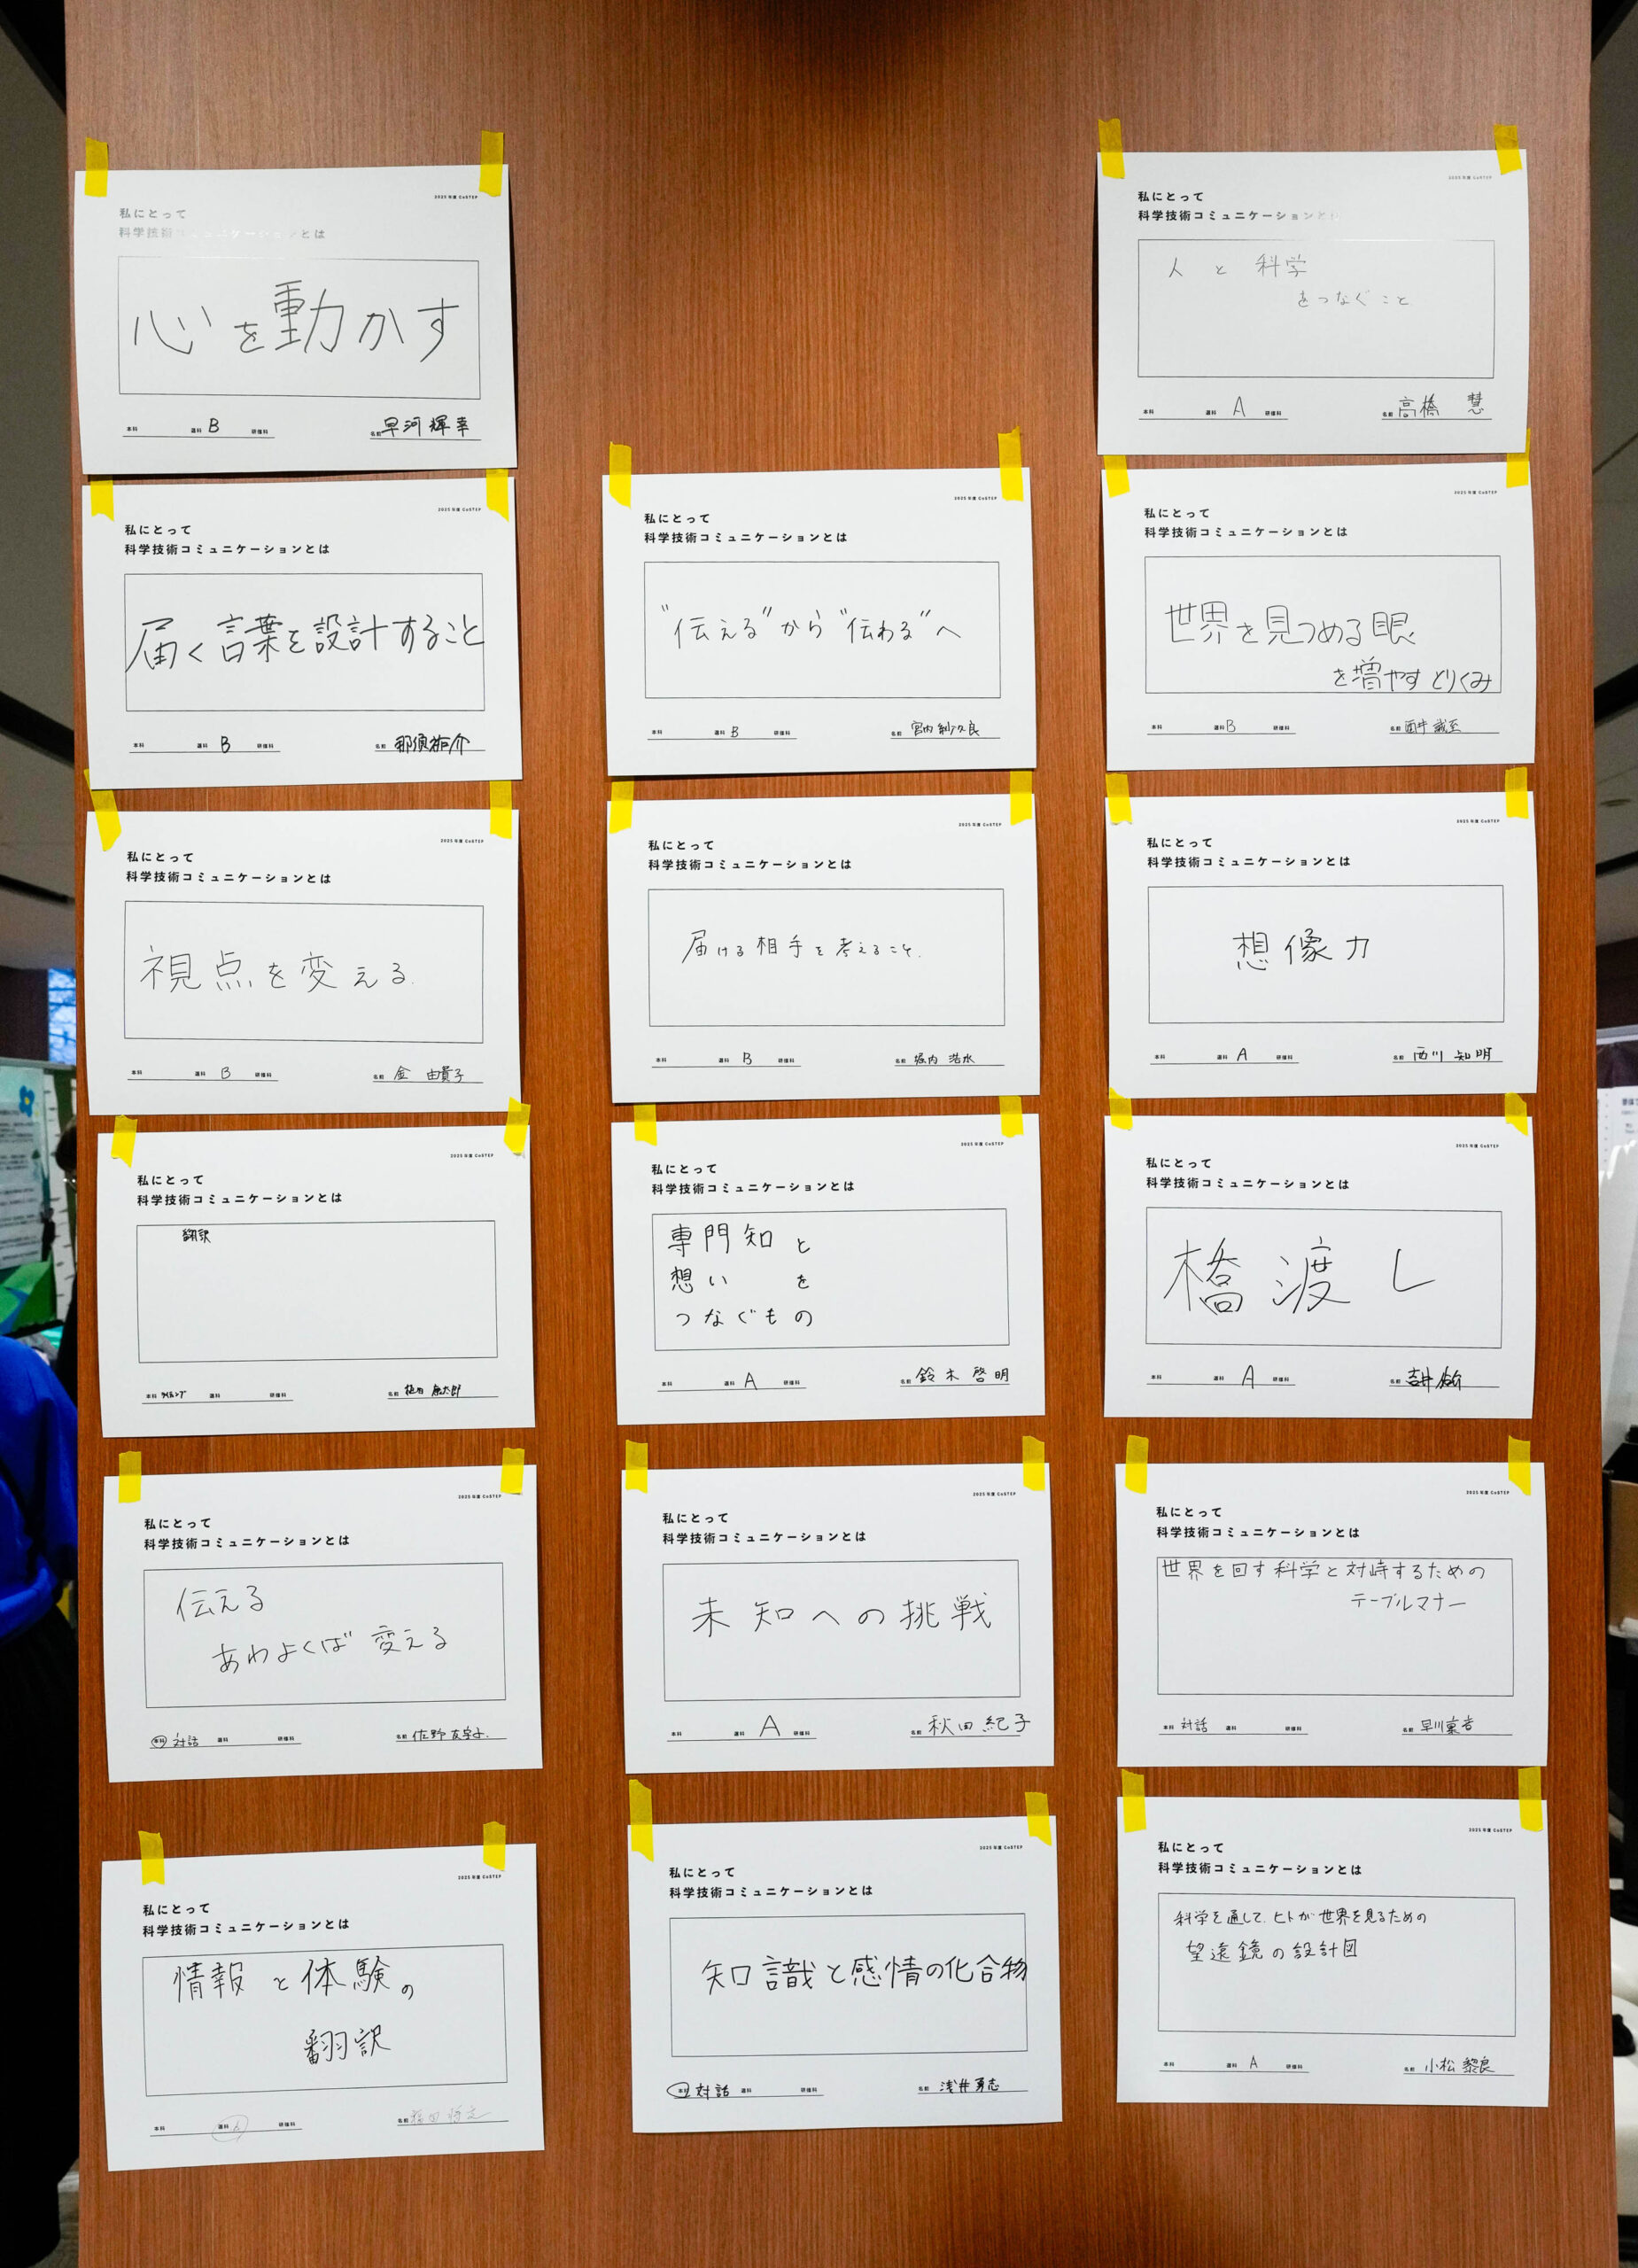 2025年度 CoSTEP
私にとって
科学技術コミュニケーションとは
心を動かす
本科 選科 B 研修科 名前 早河輝幸
2025年度 CoSTEP
私にとって
科学技術コミュニケーションとは
届く言葉を設計すること
本科 選科 B 研修科 名前 那須祐介
2025年度 CoSTEP
私にとって
科学技術コミュニケーションとは
視点を変える.
本科 選科 B 研修科 名前 金 由貴子
2025年度 CoSTEP
私にとって
科学技術コミュニケーションとは
翻訳
本科 選科 研修科 名前
2025年度 CoSTEP
私にとって
科学技術コミュニケーションとは
伝える
あわよくば 変える
本科 対話 選科 研修科 名前 佐野
2025年度 CoSTEP
私にとって
科学技術コミュニケーションとは
情報と体験の
翻訳
本科 選科 A 研修科 名前
2025年度 CoSTEP
私にとって
科学技術コミュニケーションとは
"伝える"から"伝わる"へ
本科 選科 B 研修科 名前 宮内紗久良
2025年度 CoSTEP
私にとって
科学技術コミュニケーションとは
届ける相手を考えること.
本科 選科 B 研修科 名前 堀内 浩水
2025年度 CoSTEP
私にとって
科学技術コミュニケーションとは
専門知と
想い を
つなぐもの
本科 選科 A 研修科 名前 鈴木啓明
2025年度 CoSTEP
私にとって
科学技術コミュニケーションとは
未知への挑戦
本科 選科 A 研修科 名前 秋田紀子
2025年度 CoSTEP
私にとって
科学技術コミュニケーションとは
知識と感情の化合物
本科 対話 選科 研修科 名前 浅井勇志
2025年度 CoSTEP
私にとって
科学技術コミュニケーションとは
人と科学
をつなぐこと
本科 選科 A 研修科 名前 高橋 慧
2025年度 CoSTEP
私にとって
科学技術コミュニケーションとは
世界を見つめる眼
を増やす とりくみ
本科 選科 B 研修科 名前 酉井 誠至
2025年度 CoSTEP
私にとって
科学技術コミュニケーションとは
想像力
本科 選科 A 研修科 名前 西川 知明
2025年度 CoSTEP
私にとって
科学技術コミュニケーションとは
橋渡し
本科 選科 A 研修科 名前 吉井
2025年度 CoSTEP
私にとって
科学技術コミュニケーションとは
世界を回す科学と対峙するための
テーブルマナー
本科 対話 選科 研修科 名前 早川
2025年度 CoSTEP
私にとって
科学技術コミュニケーションとは
科学を通して、ヒトが世界を見るための
望遠鏡の設計図
本科 選科 A 研修科 名前 小松 黎良